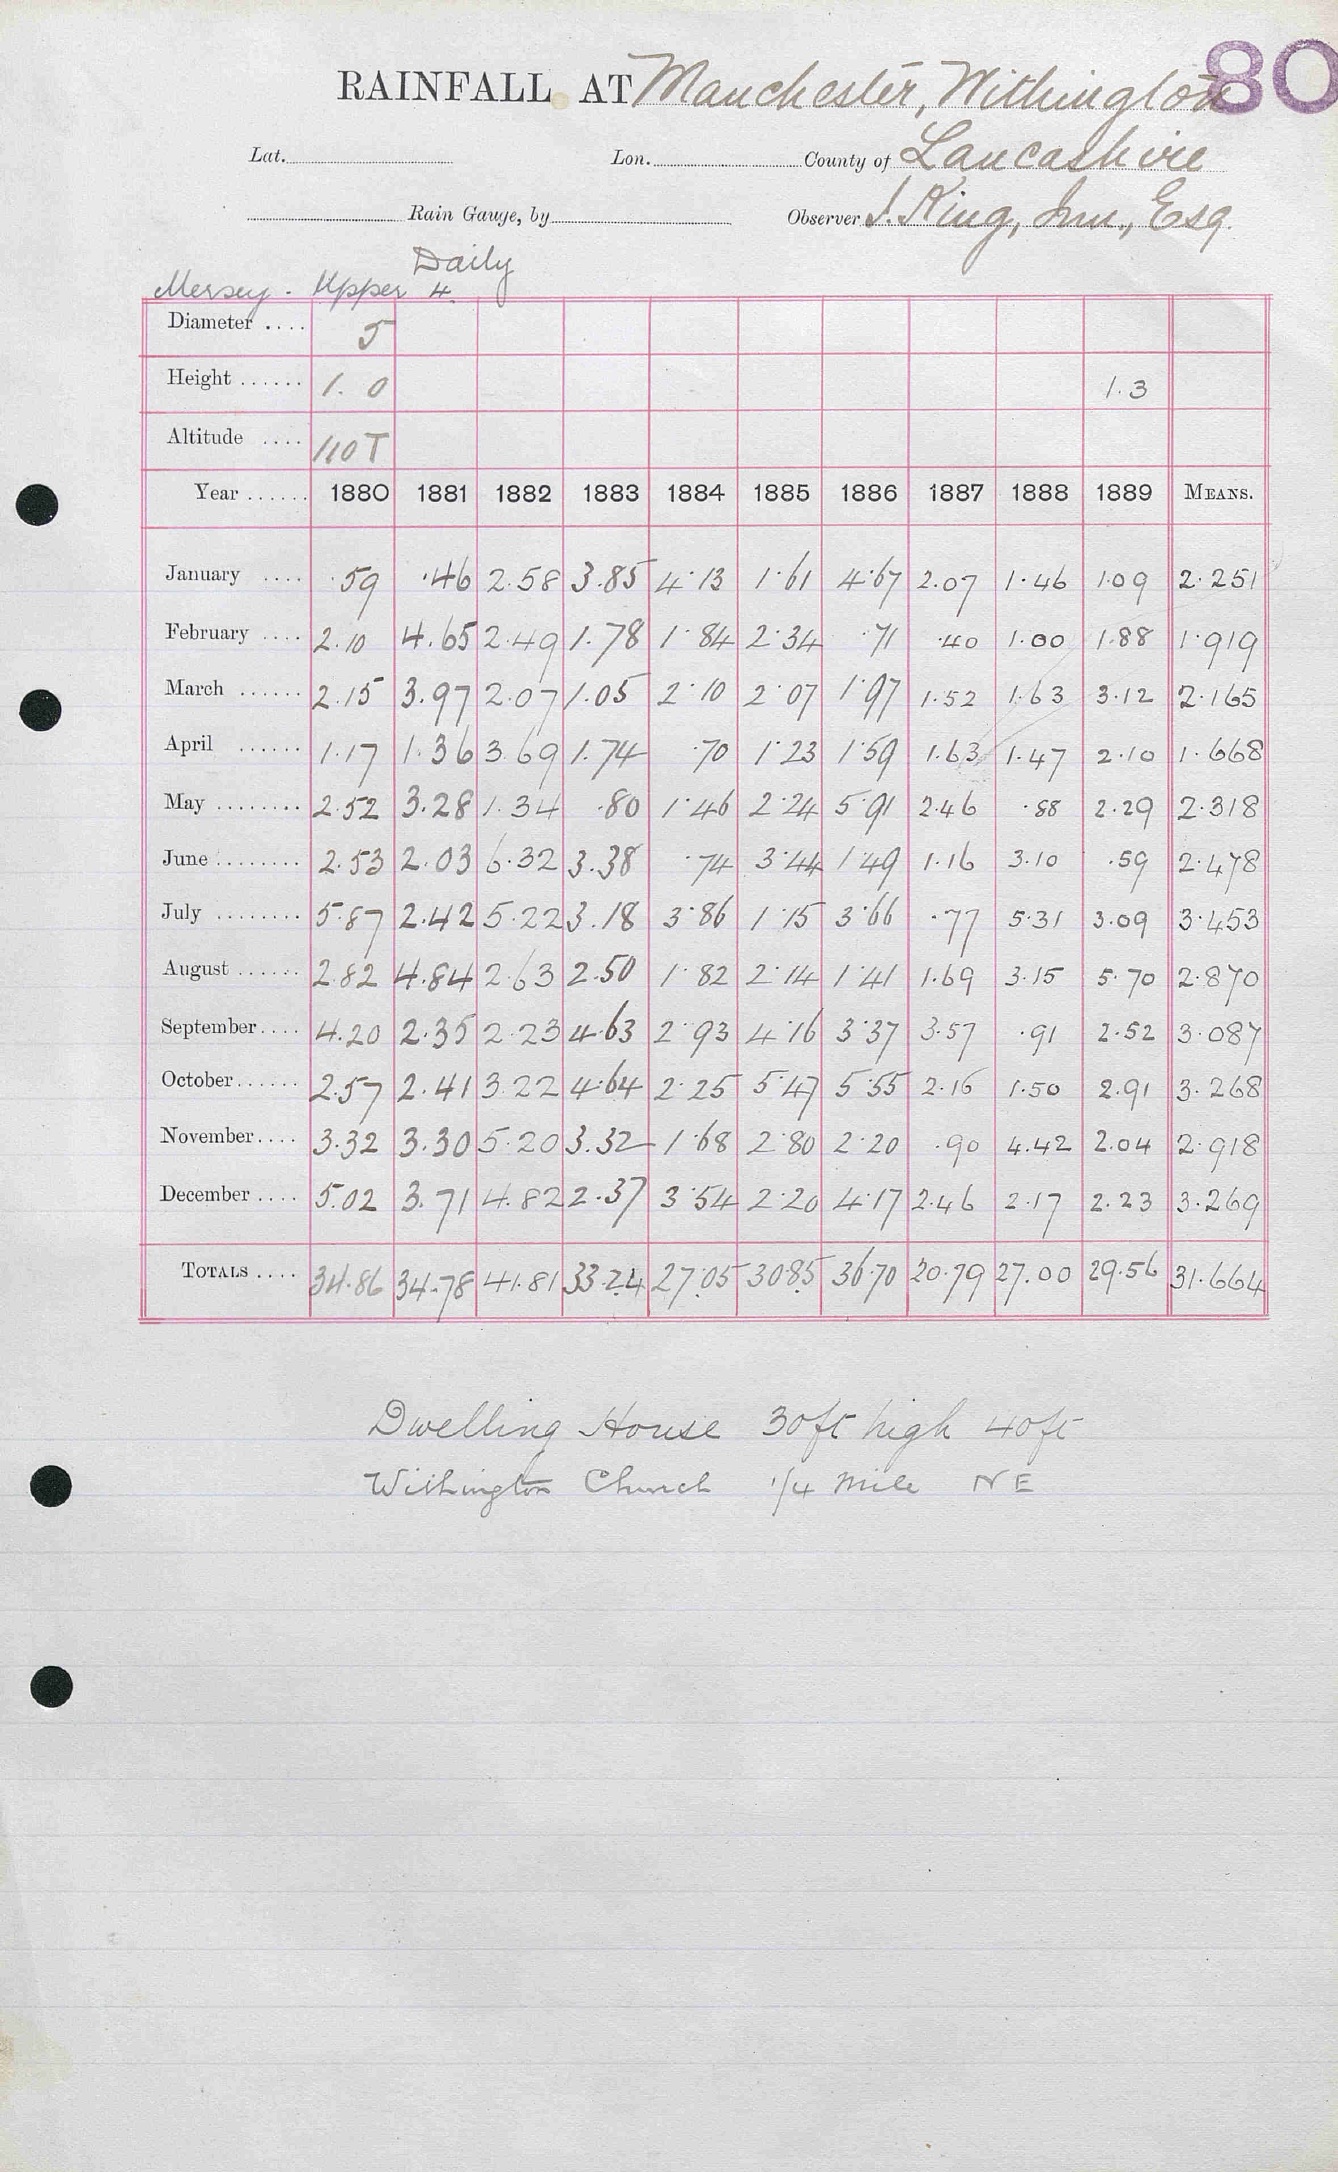 80
RAINFALL AT Manchester, Withington
Lat. Lon. County of Lancashire
Rain Gauge, by Observer J. King, Jnr., Esq.
Daily
Mersey - Upper 4.
Diameter .... 5
Height ...... 1. 0 1.3
Altitude .... 110 T
Year ...... 1880 1881 1882 1883 1884 1885 1886 1887 1888 1889 MEANS.
January .... .59 .46 2.58 3.85 4.13 1.61 4.67 2.07 1.46 1.09 2.251
February .... 2.10 4.65 2.49 1.78 1.84 2.34 .71 .40 1.00 1.88 1.919
March ...... 2.15 3.97 2.07 1.05 2.10 2.07 1.97 1.52 1.63 3.12 2.165
April ...... 1.17 1.36 3.69 1.74 .70 1.23 1.59 1.63 1.47 2.10 1.668
May ........ 2.52 3.28 1.34 .80 1.46 2.24 5.91 2.46 .88 2.29 2.318
June ........ 2.53 2.03 6.32 3.38 .74 3.44 1.49 1.16 3.10 .59 2.478
July ........ 5.87 2.42 5.22 3.18 3.86 1.15 3.66 .77 5.31 3.09 3.453
August ...... 2.82 4.84 2.63 2.50 1.82 2.14 1.41 1.69 3.15 5.70 2.870
September .... 4.20 2.35 2.23 4.63 2.93 4.16 3.37 3.57 .91 2.52 3.087
October ...... 2.57 2.41 3.22 4.64 2.25 5.47 5.55 2.16 1.50 2.91 3.268
November .... 3.32 3.30 5.20 3.32 1.68 2.80 2.20 .90 4.42 2.04 2.918
December .... 5.02 3.71 4.82 2.37 3.54 2.20 4.17 2.46 2.17 2.23 3.269
TOTALS .... 34.86 34.78 41.81 33.24 27.05 30.85 36.70 20.79 27.00 29.56 31.664
Dwelling House 30ft high 40ft
Withington Church 1/4 Mile NE